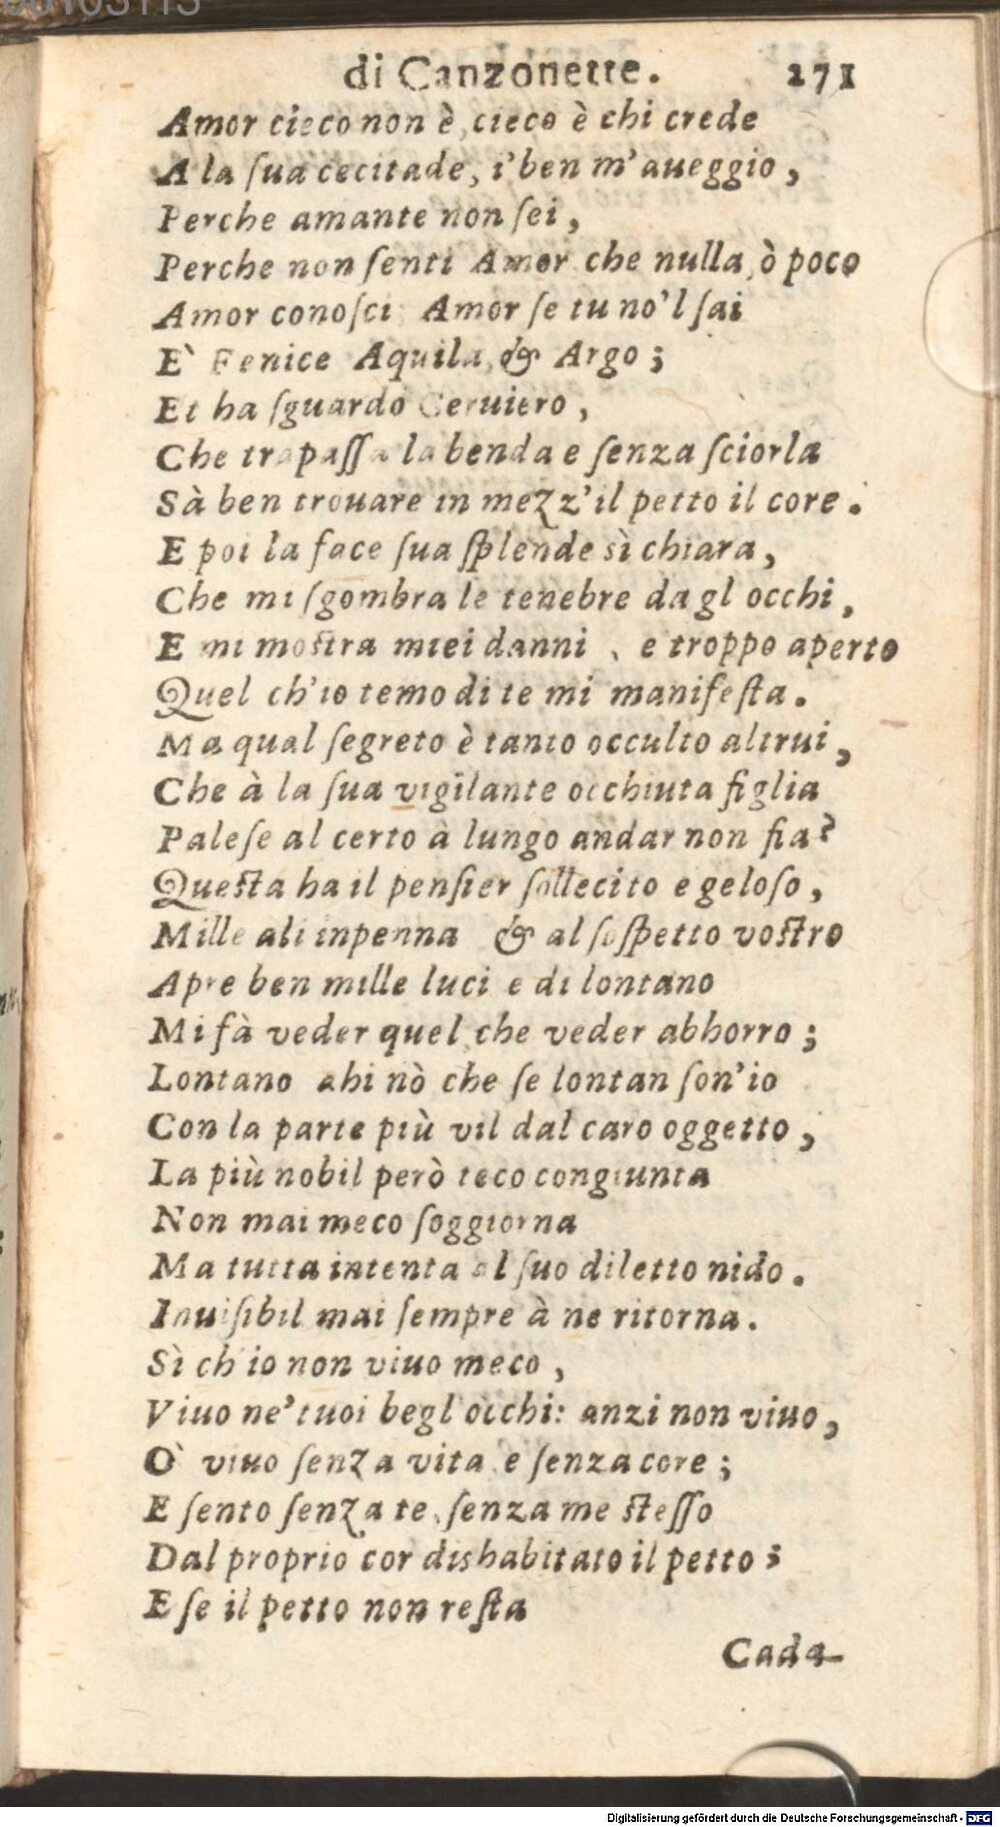 di Canzonette. 271
Amor cieco non è, cieco è chi crede
A la ſua cecitade, i' ben m' aueggio,
Perche amante non ſei,
Perche non ſenti Amor che nulla, ò poco
Amor conoſci Amor ſe tu no'l ſai
E' Fenice Aquila, & Argo;
Et ha ſguardo Ceruiero,
Che trapaſſa la benda e ſenza ſciorla
Sà ben trouare in mezz' il petto il core.
E poi la face ſua ſplende sì chiara,
Che mi ſgombra le tenebre da gl occhi,
E mi moſtra miei danni, e troppo aperto
Quel ch'io temo di te mi manifeſta.
Ma qual ſegreto è tanto occulto altrui,
Che à la ſua vigilante occhiuta figlia
Paleſe al certo à lungo andar non fia?
Queſta ha il penſier ſollecito e geloſo,
Mille ali inpenna & al ſoſpetto voſtro
Apre ben mille luci e di lontano
Mi fà veder quel, che veder abhorro;
Lontano ahi nò che ſe lontan ſon'io
Con la parte più vil dal caro oggetto,
La più nobil però teco congiunta
Non mai meco ſoggiorna
Ma tutta intenta al ſuo diletto nido.
Inuiſibil mai ſempre à ne ritorna.
Sì ch'io non viuo meco,
Viuo ne' tuoi begl'occhi: anzi non viuo,
O' viuo ſenza vita e ſenza core;
E ſento ſenza te, ſenza me ſteſſo
Dal proprio cor dishabitato il petto;
E ſe il petto non reſta
Cada-
Digitalisierung gefördert durch die Deutsche Forschungsgemeinschaft - DFG